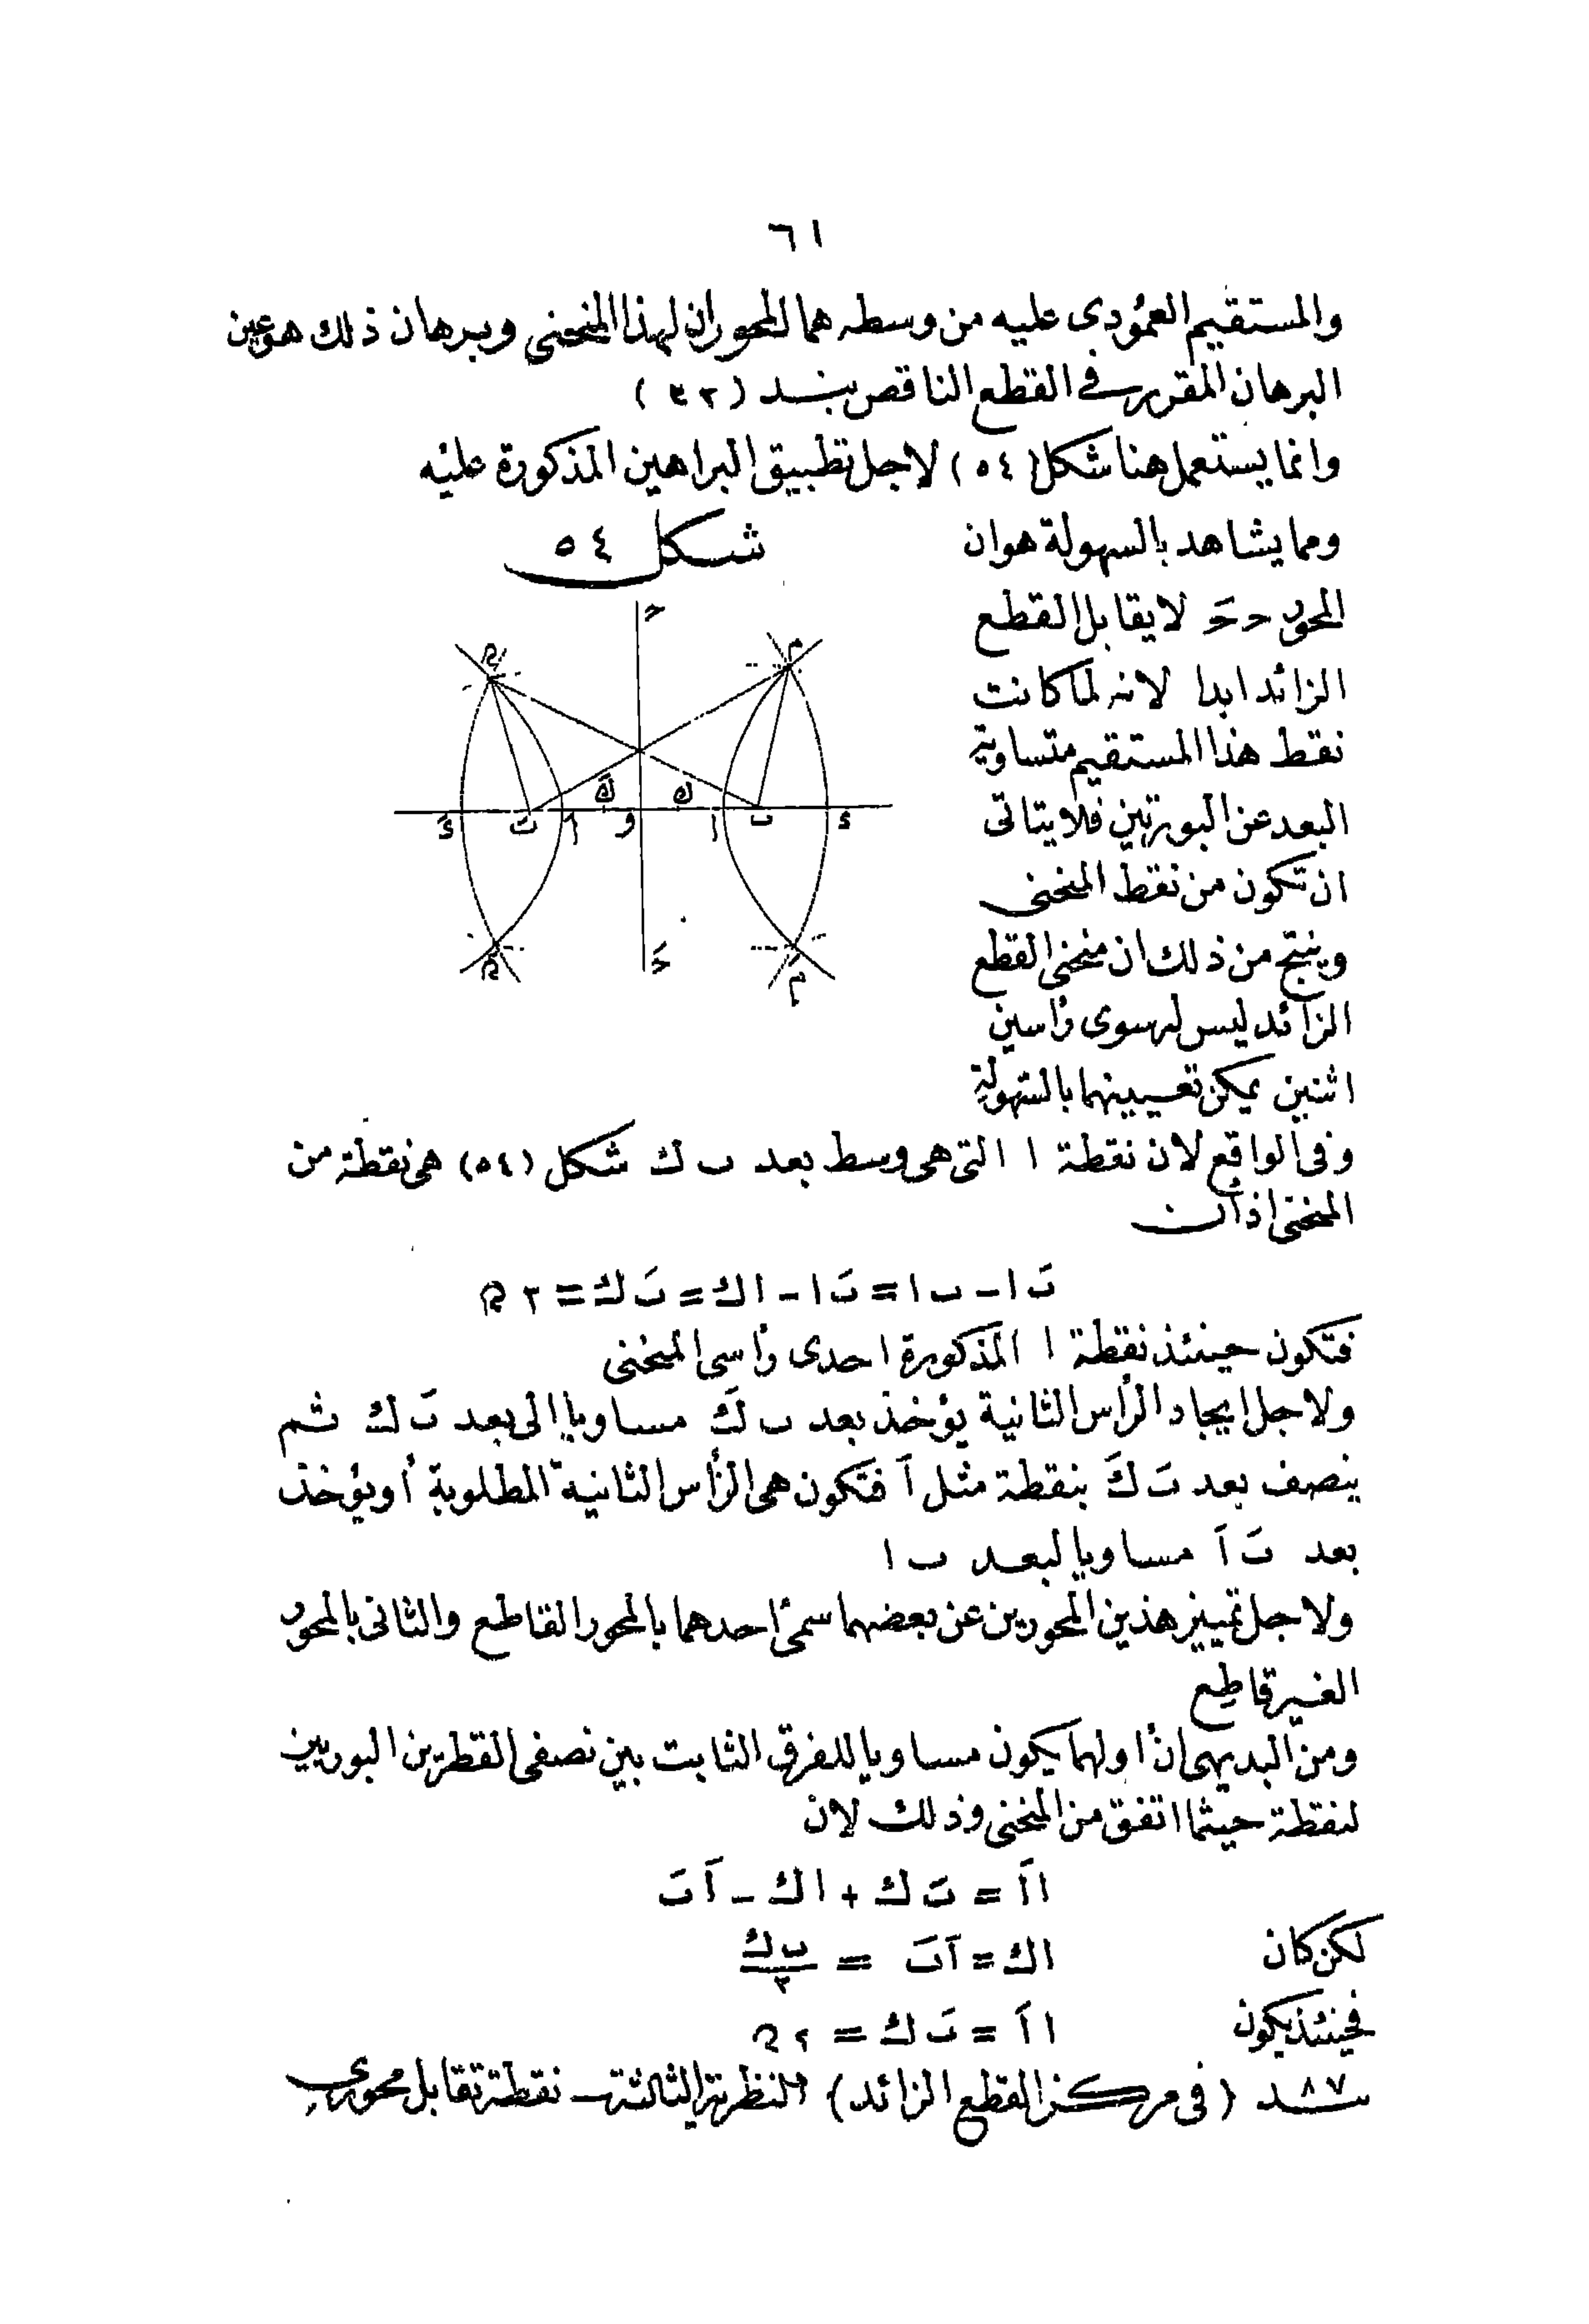 ٦١
والمستقيم العمودى عليه من وسطه هما المحوران لهذا المنحنى وبرهان ذلك هو عين
البرهان المقرر فى القطع الناقص بند (٣٢)
وانما يستعمل هنا شكل (٥٤) لاجل تطبيق البراهين المذكورة عليه
شكل ٥٤
ومما يشاهد بالسهولة هو ان
المحور حـ حـَ لا يقابل القطع
الزائد ابدا لانه لما كانت
نقط هذا المستقيم متساوية
البعد عن البورتين فلا يتاتى
ان تكون من نقط المنحنى
وينتج من ذلك ان منحنى القطع
الزائد ليس له سوى رأسين
اثنين يمكن تعيينهما بالسهولة
وفى الواقع لان نقطة ا التى هى وسط بعد ب ك شكل (٥٤) هى نقطة من
المنحنى اذ أن
بَ ا - ب ا = بَ ا - ا ك = بَ ك = ٢ ه
فتكون حينئذ نقطة ا المذكورة احدى رأسى المنحنى
ولاجل ايجاد الرأس الثانية يؤخذ بعد ب كَ مساويا الى بعد بَ ك ثم
ينصف بعد بَ كَ بنقطة مثل اَ فتكون هى الرأس الثانية المطلوبة أو يؤخذ
بعد بَ اَ مساويا لبعد ب ا
ولاجل تمييز هذين المحورين عن بعضهما سمى أحدهما بالمحور القاطع والثانى بالمحور
الغير قاطع
ومن البديهى ان أولهما يكون مساويا للفرق الثابت بين نصفى القطرين البوريين
لنقطة حيثما اتفق من المنحنى وذلك لان
ا اَ = بَ ك + ا ك - اَ بَ
لكن كان ا ك = اَ بَ = ب ك / ٢
فحينئذ يكون ا اَ = بَ ك = ٢ ه
بند ٨٧ (فى مركز القطع الزائد) النظرية الثالثة نقطة تقابل محورى